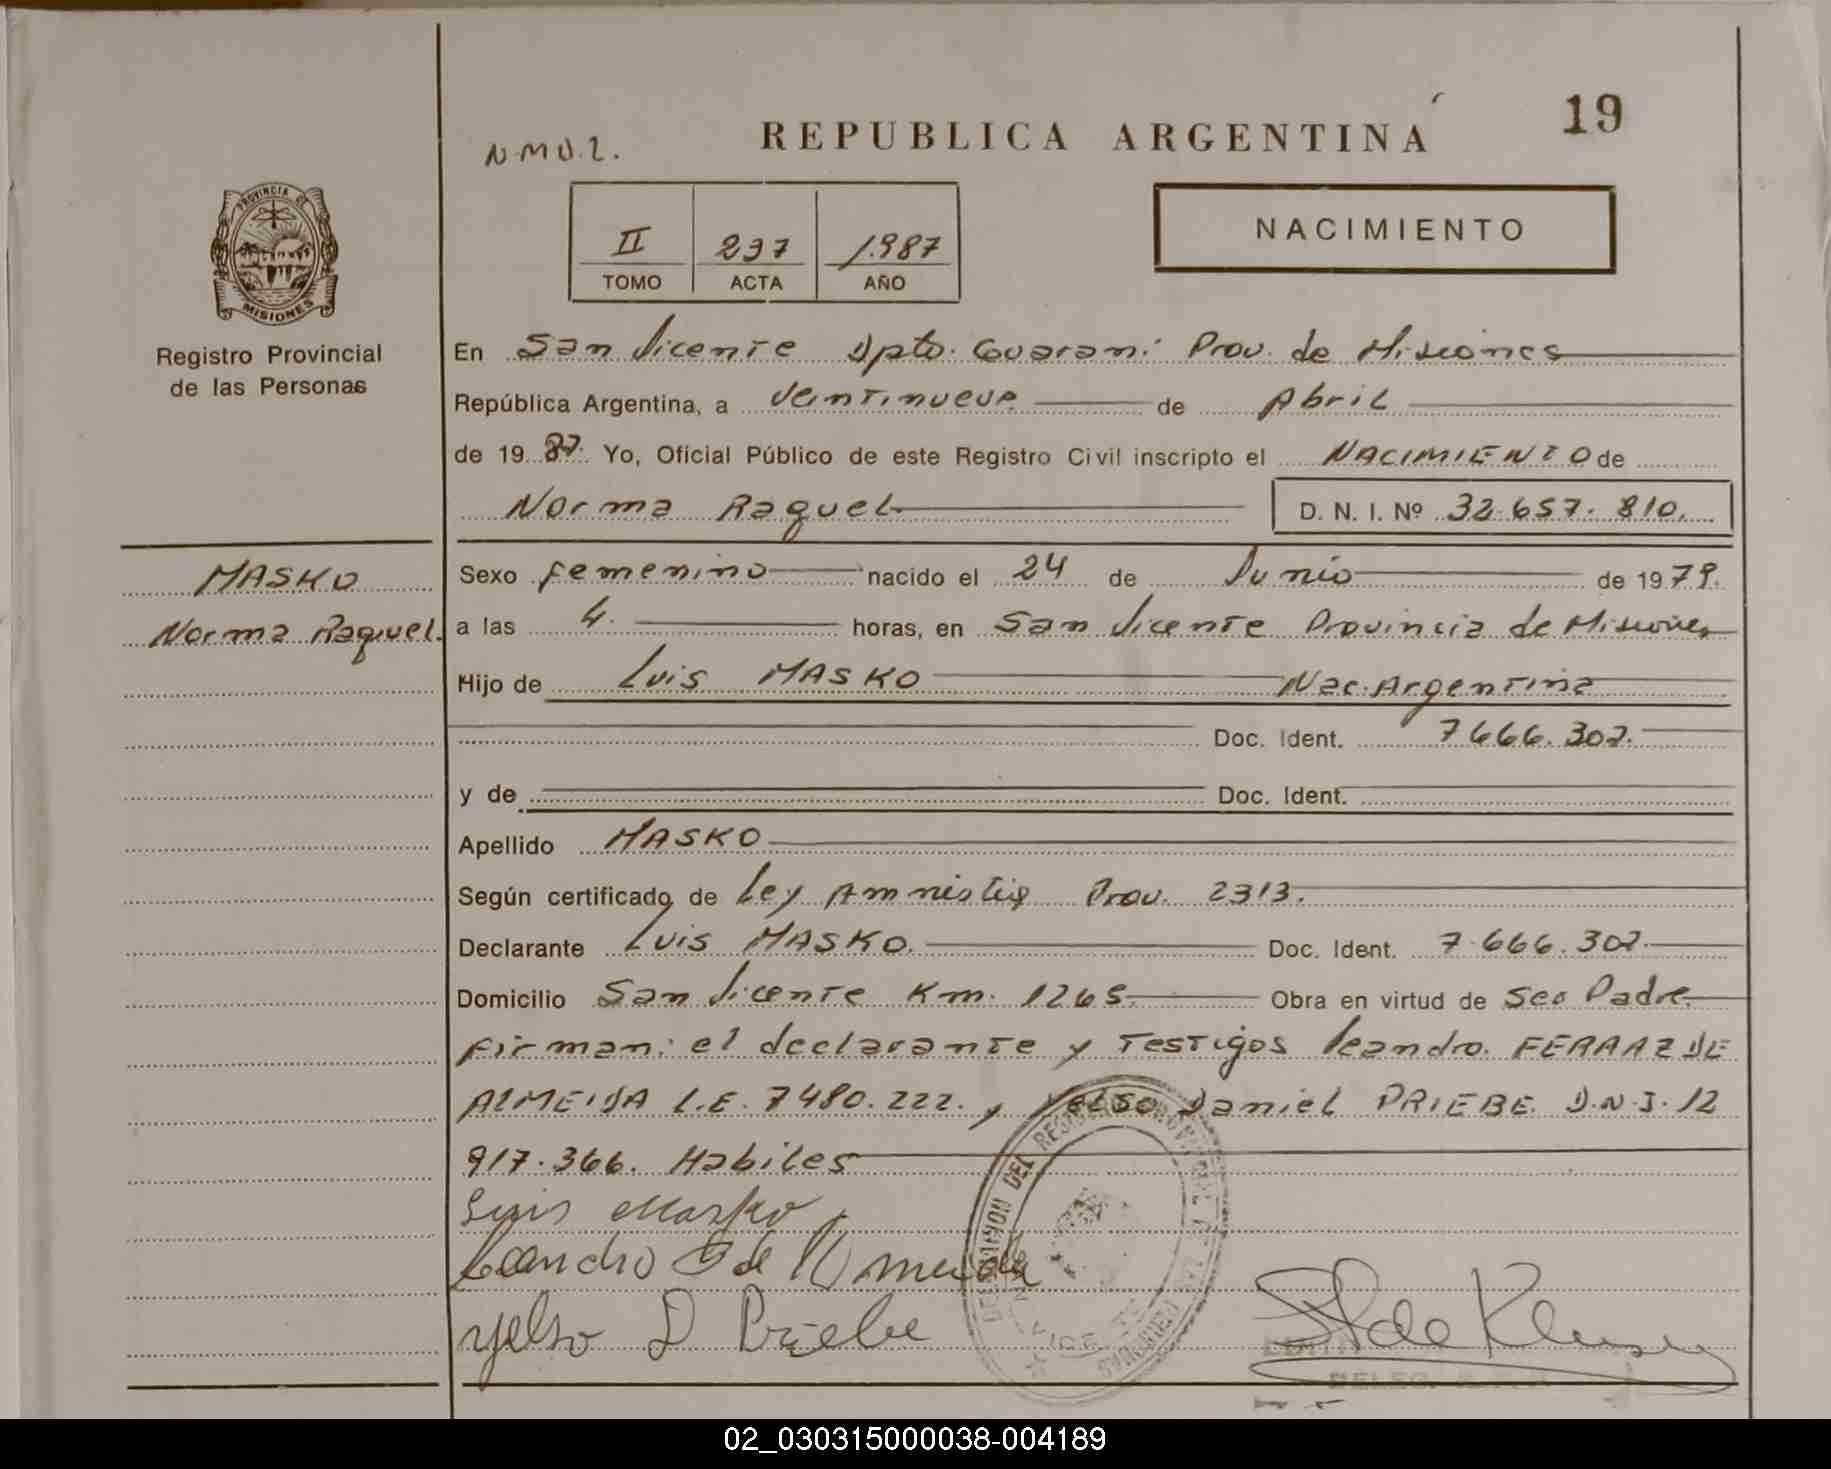 19
REPUBLICA ARGENTINA
N.M.U.2.
NACIMIENTO
II 237 1.987
TOMO ACTA AÑO
PROVINCIA DE
MISIONES
Registro Provincial
de las Personas
En San Vicente Dpto. Guaraní Prov. de Misiones
República Argentina, a veintinueve de Abril
de 19 87. Yo, Oficial Público de este Registro Civil inscripto el NACIMIENTO de
Norma Raquel D. N. I. Nº 32.657.810.
MASKO
Norma Raquel.
Sexo femenino nacido el 24 de Junio de 1979.
a las 4. horas, en San Vicente Provincia de Misiones
Hijo de Luis MASKO Nac. Argentina
Doc. Ident. 7.666.302.
y de Doc. Ident.
Apellido MASKO
Según certificado de Ley Amnistia Prov. 2313.
Declarante Luis MASKO. Doc. Ident. 7.666.302.
Domicilio San Vicente Km. 1265. Obra en virtud de Ser Padre.
firman: el declarante y Testigos Leandro. FERRAZ DE
ALMEIDA L.E. 7480.222. y Yelso Daniel PRIEBE. D.N.I. 12
917.366. Habiles
Luis Masko
Leandro F de Almeida
Yelso D Priebe
02_030315000038-004189